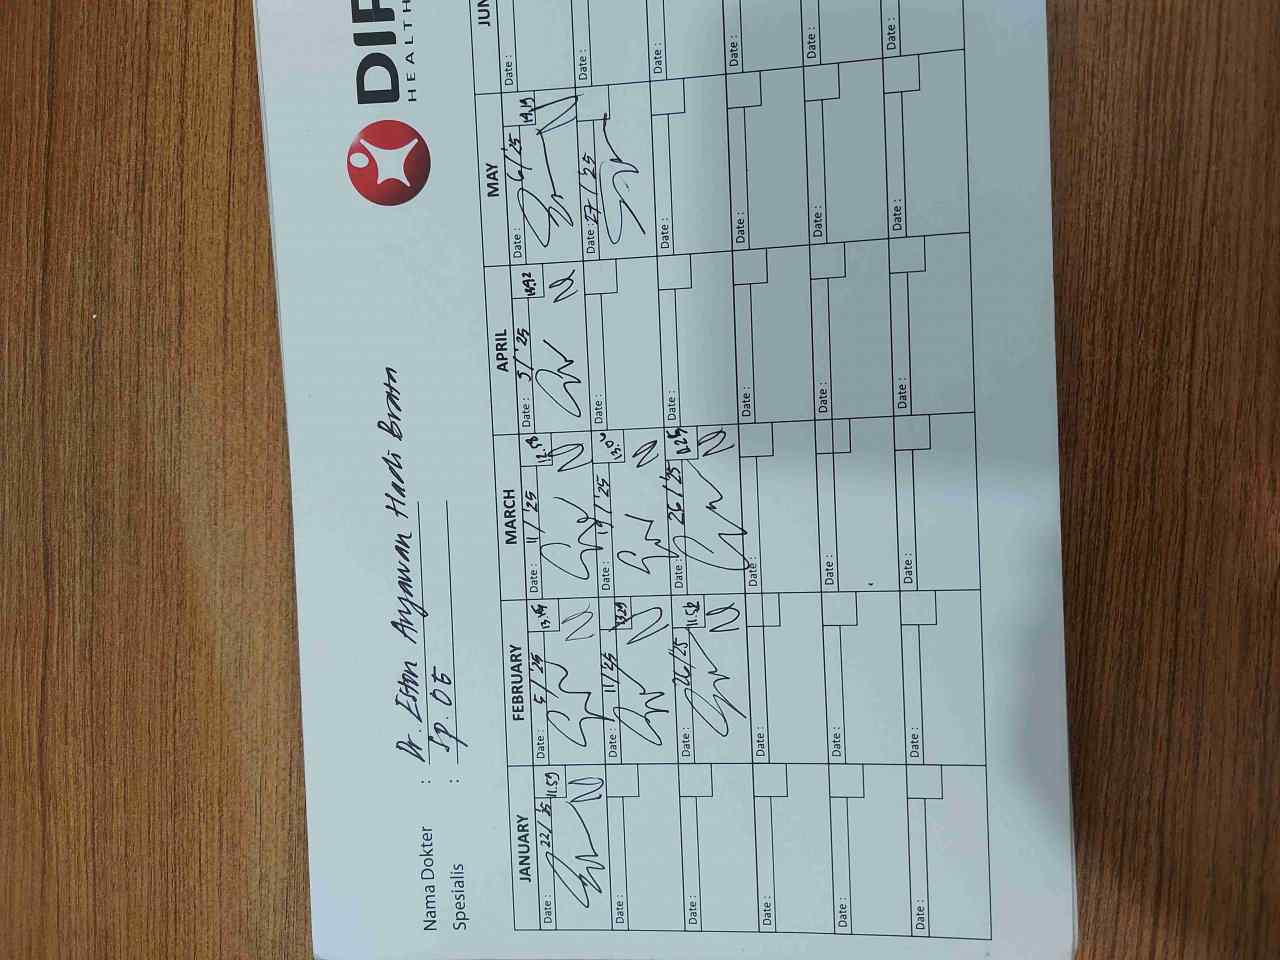 DIP
HEALTH
Nama Dokter : Dr. Eston Aryawan Hadi Brata
Spesialis : Sp. OT
JANUARY FEBRUARY MARCH APRIL MAY JUN
Date: 22/'25 11.59 Date: 5/'25 Date: 11/'25 12.58 Date: 5/'25 Date: 6/'25 14.19 Date:
Date: Date: 11/25 13.29 Date: 19/'25 Date: Date: 27/'25 Date:
Date: Date: 26/'25 11.52 Date: 26/'25 Date: Date: Date:
Date: Date: Date: Date: Date: Date:
Date: Date: Date: Date: Date: Date:
Date: Date: Date: Date: Date: Date: